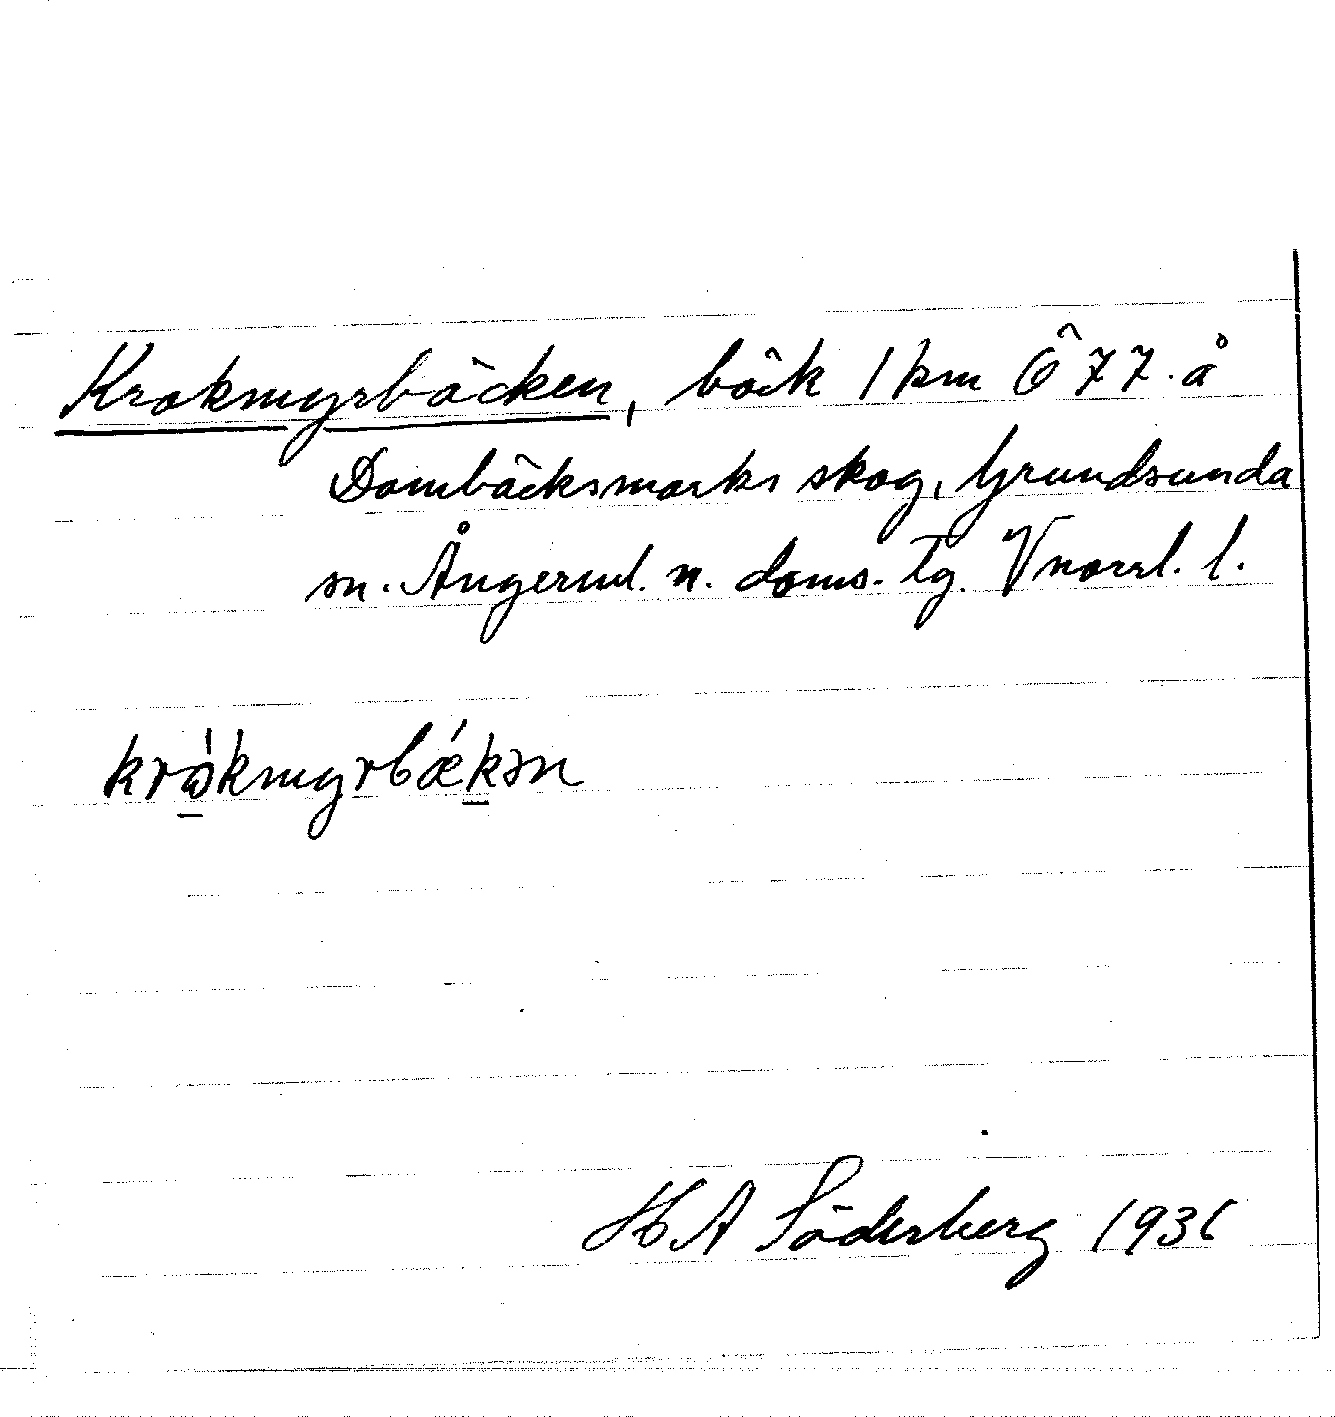 Krokmyrbäcken, bäck 1 km Ö 77. å
Dombäcksmarks skog, Grundsunda
sn. Ångerml. n. doms. tg. Vnorrl. l.
krɷ̀kmyrbǽkən
H A Söderberg 1936